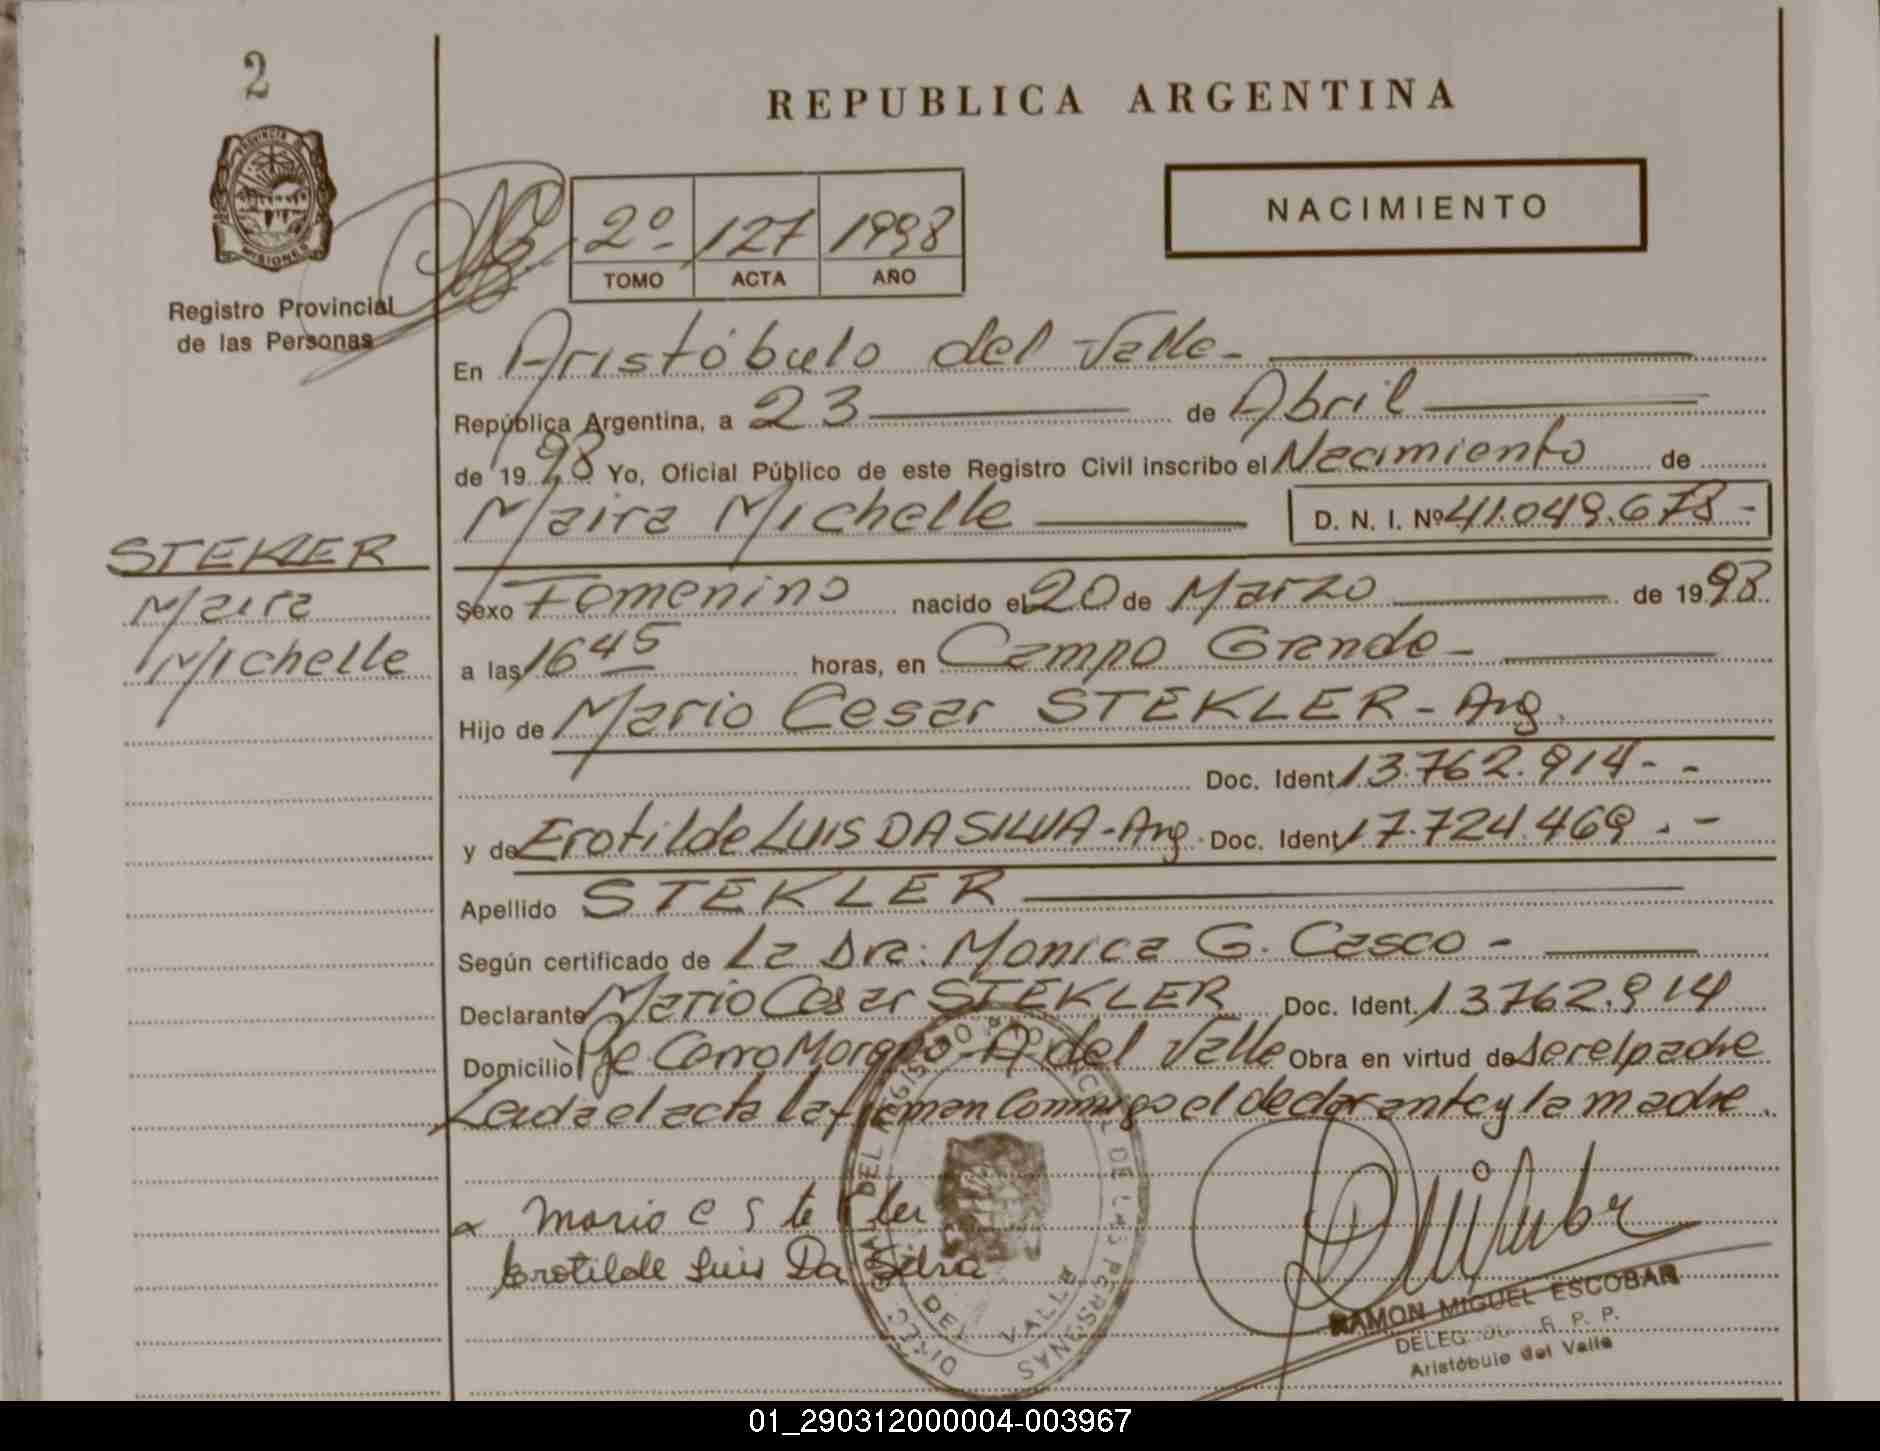 2
REPUBLICA ARGENTINA
PROVINCIA DE MISIONES
Registro Provincial
de las Personas
2º 127 1998
TOMO ACTA AÑO
NACIMIENTO
En Aristóbulo del Valle -
República Argentina, a 23 de Abril
de 1998 Yo, Oficial Público de este Registro Civil inscribo el Nacimiento de
Maira Michelle D. N. I. Nº 41.049.678 -
STEKLER
Maira
Michelle
Sexo Femenino nacido el 20 de Marzo de 1998
a las 16 45 horas, en Campo Grande -
Hijo de Mario Cesar STEKLER - Arg.
Doc. Ident. 13.762.914 - -
y de Erotilde LUIS DA SILVA - Arg. Doc. Ident. 17.724.469 . -
Apellido STEKLER
Según certificado de La Dra: Monica G. Casco -
Declarante Mario Cesar STEKLER Doc. Ident. 13.762.914
Domicilio Pje Cerro Moreno - A. del Valle Obra en virtud de ser el padre
Leida el acta la firman conmigo el declarante y la madre.
Mario C Stekler
Erotilde Luis Da Silva
DEL REGISTRO PROVINCIAL DE LAS PERSONAS
DEL VALLE
RAMON MIGUEL ESCOBAR
DELEG. R. P. P.
Aristóbulo del Valle
01_290312000004-003967